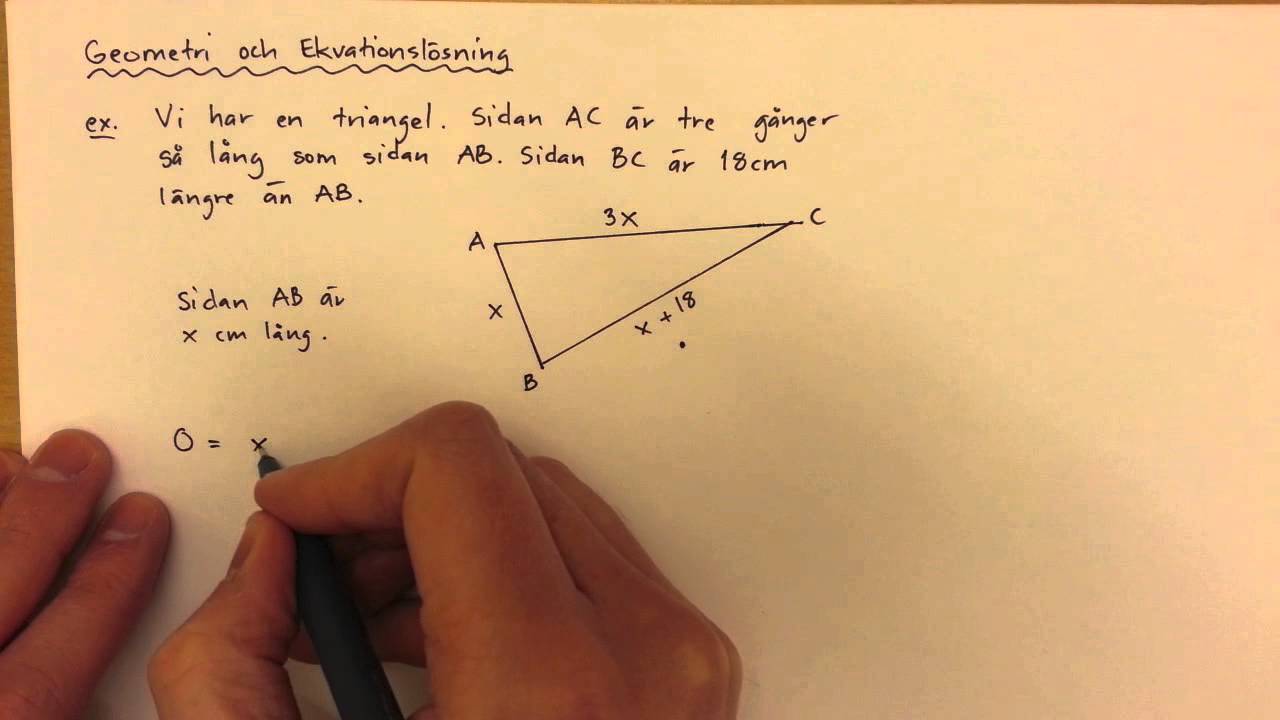 Geometri och Ekvationslösning
ex. Vi har en triangel. Sidan AC är tre gånger
så lång som sidan AB. Sidan BC är 18cm
längre än AB.
3x
C
A
Sidan AB är
x cm lång.
x
x + 18
B
O = x